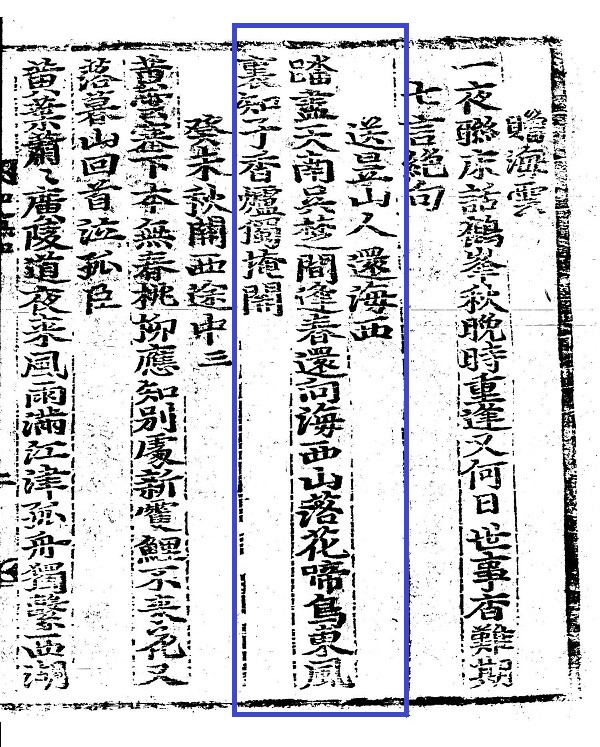 贈海雲
一夜聯床話鶴峯秋晚時重逢又何日世事杳難期
七言絶句
送昱山人還海西
踏盡天南吳楚間逢春還向海西山落花啼鳥東風
裏知子香爐獨掩關
癸未秋關西途中三
黃雲塞下本無春桃柳應知別處新䨇鯉不來花又
落暮山回首泣孤臣
黃葉蕭〻廣陵道夜來風雨滿江津孤舟獨繫西湖